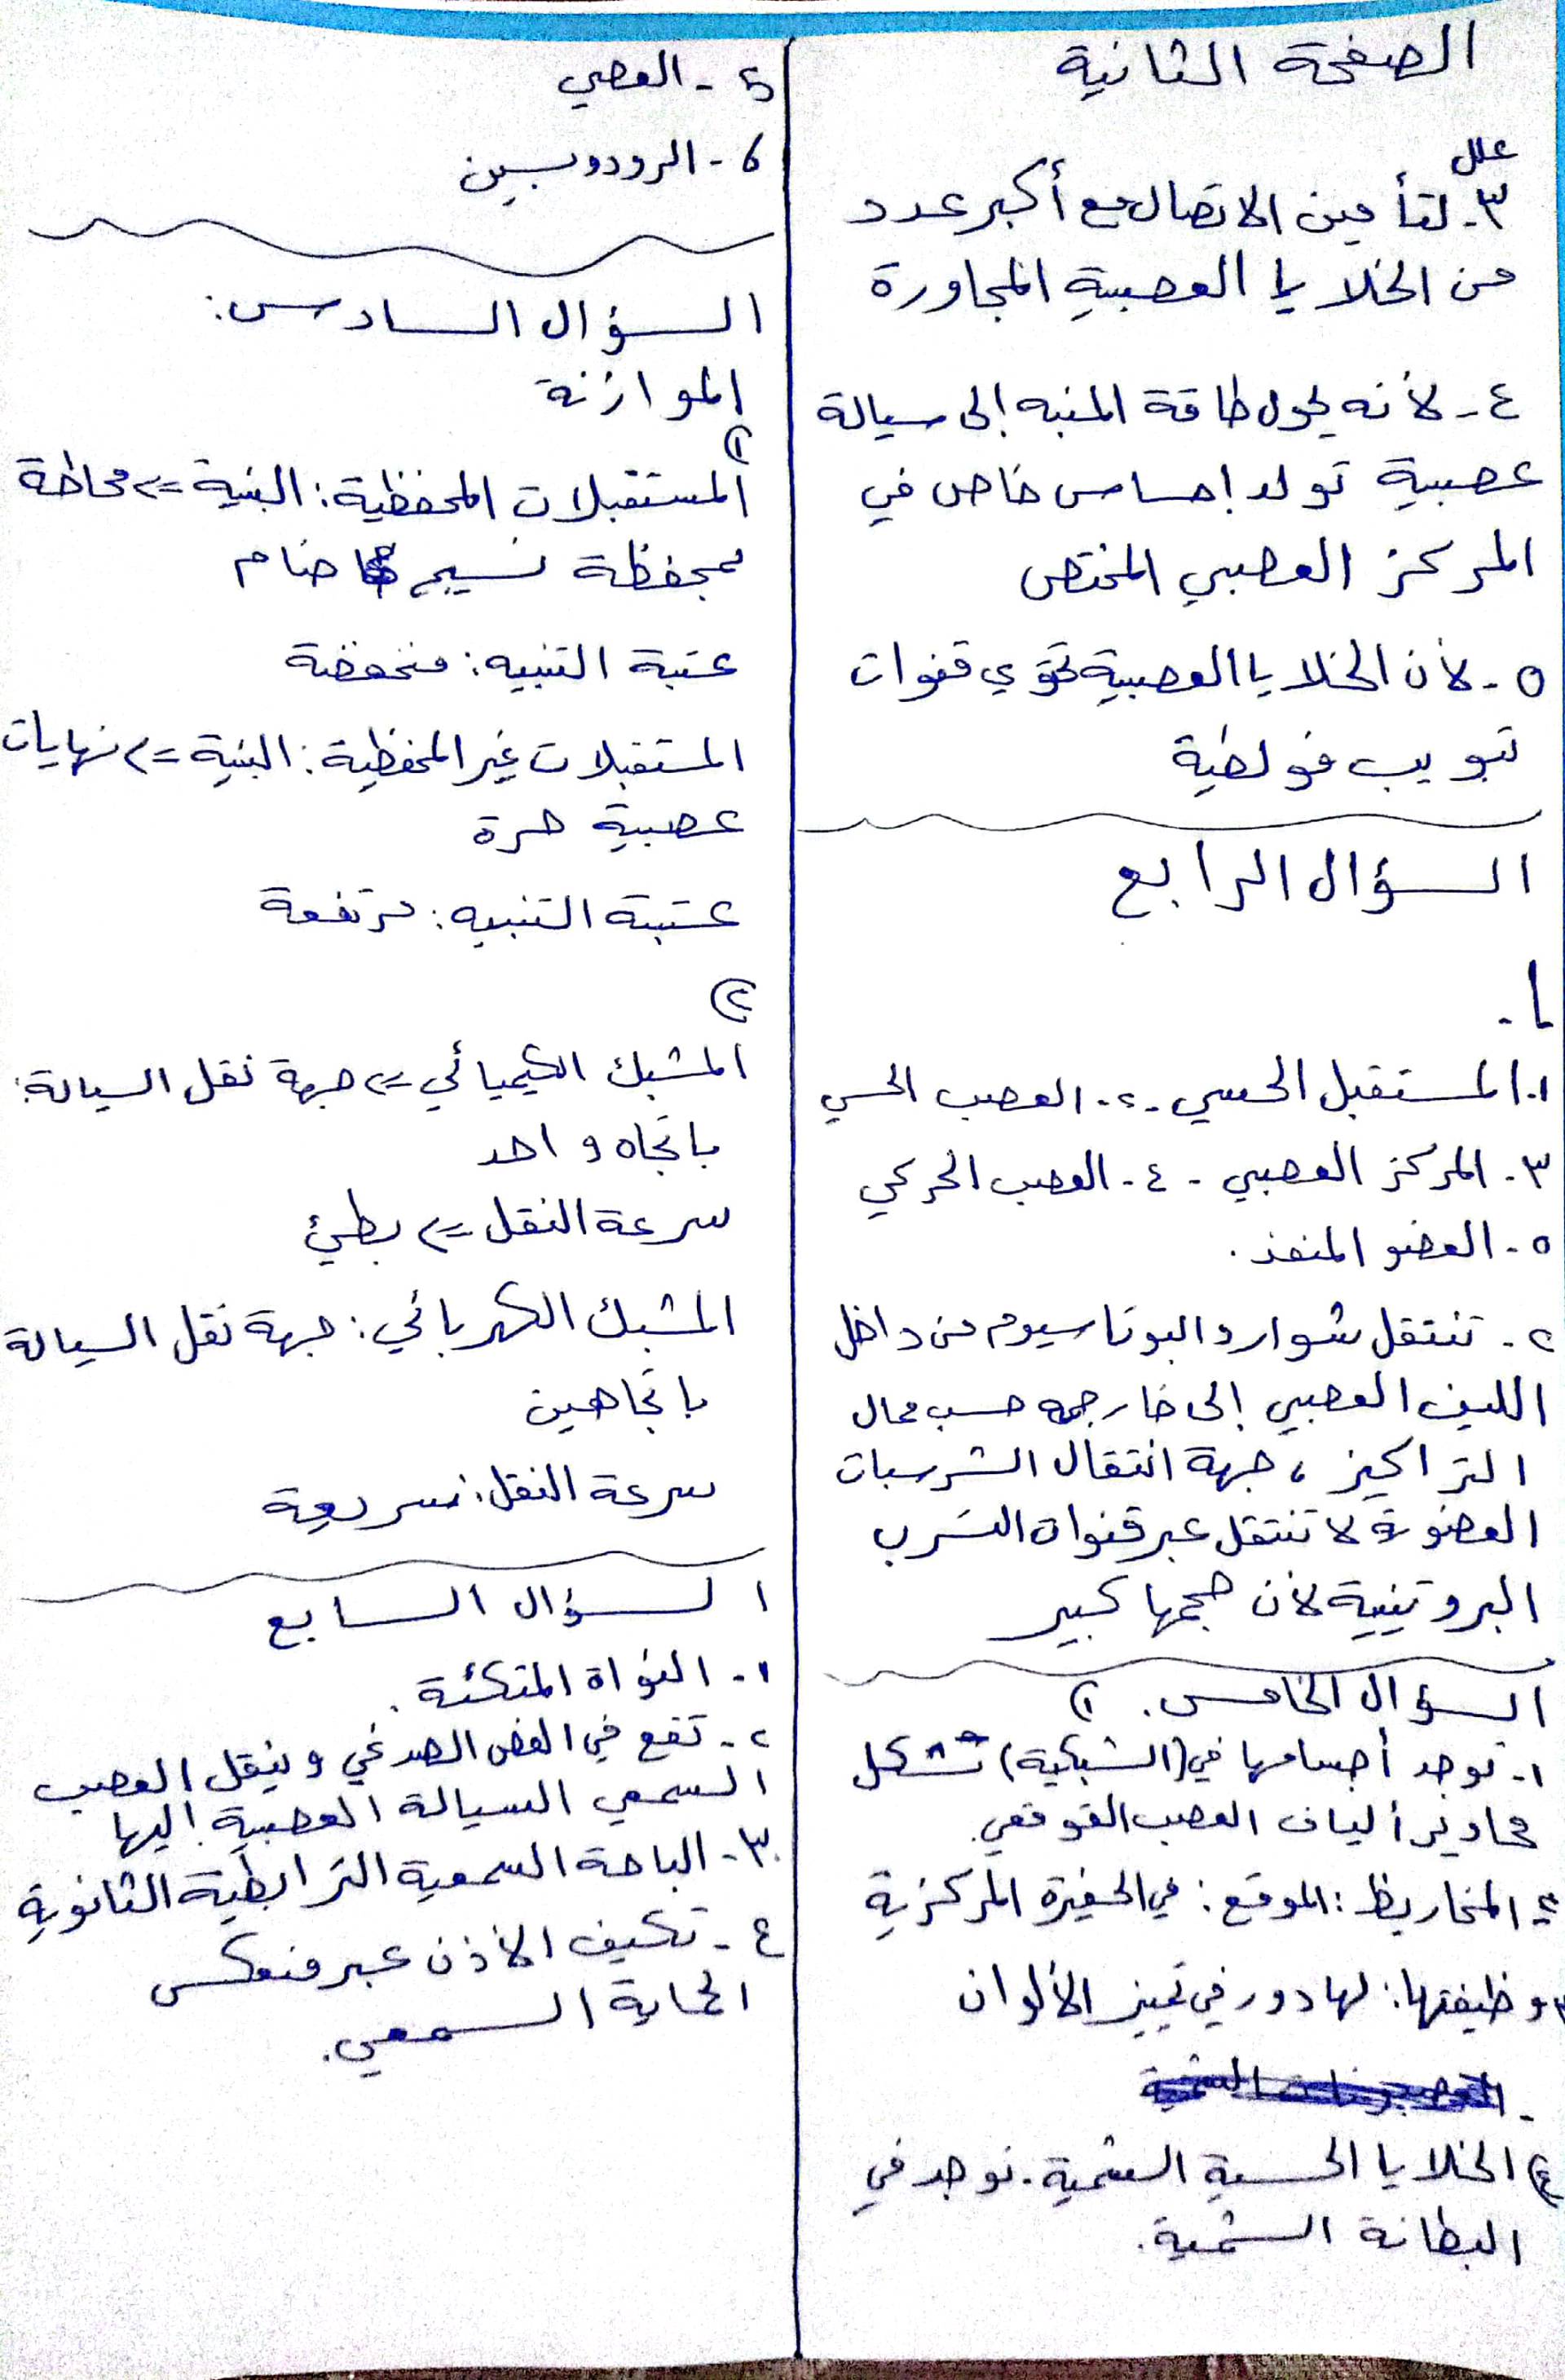 الصفحة الثانية
علل
٣- لتأمين الاتصال مع أكبر عدد
من الخلايا العصبية المجاورة
٤- لأنه يحول طاقة المنبه إلى سيالة
عصبية تولد إحساس خاص في
المركز العصبي المختص
٥- لأن الخلايا العصبية تحوي قنوات
تبويب فولطية
السؤال الرابع
١.
١. المستقبل الحسي - ٢. العصب الحسي
٣- المركز العصبي - ٤- العصب الحركي
٥- العضو المنفذ.
٢- تنتقل شوارد البوتاسيوم من داخل
الليف العصبي إلى خارجه حسب ممال
التراكيز، جهة انتقال الشرسبات
العضوية لا تنتقل عبر قنوات التسرب
البروتينية لأن حجمها كبير
السؤال الخامس. ١)
١- توجد أجسامها في (الشبكية) تشكل
محاوير ألياف العصب القوقعي.
٢- المخاريط: الموقع: في الحفيرة المركزية
٣ وظيفتها: لها دور في تمييز الألوان
-
٤) الخلايا الحسية الشمية. توجد في
البطانة الشمية.
5- العصي
6- الرودوبسين
السؤال السادس:
الموازنة
١)
المستقبلات المحفظية: البنية => محاطة
بمحفظة نسيج ضام
عتبة التنبيه: منخفضة
المستقبلات غير المحفظية: البنية => نهايات
عصبية حرة
عتبة التنبيه: مرتفعة
٢)
المشبك الكيميائي => جهة نقل السيالة:
باتجاه واحد
سرعة النقل => بطيئ
المشبك الكهربائي: جهة نقل السيالة
باتجاهين
سرعة النقل: سريعة
السؤال السابع
١- النواة المتكئة.
٢- تقع في الفص الصدغي وينقل العصب
السمعي السيالة العصبية إليها
٣- الباحة السمعية الترابطية الثانوية
٤- تكيف الأذن عبر منعكس
الحماية السمعي.